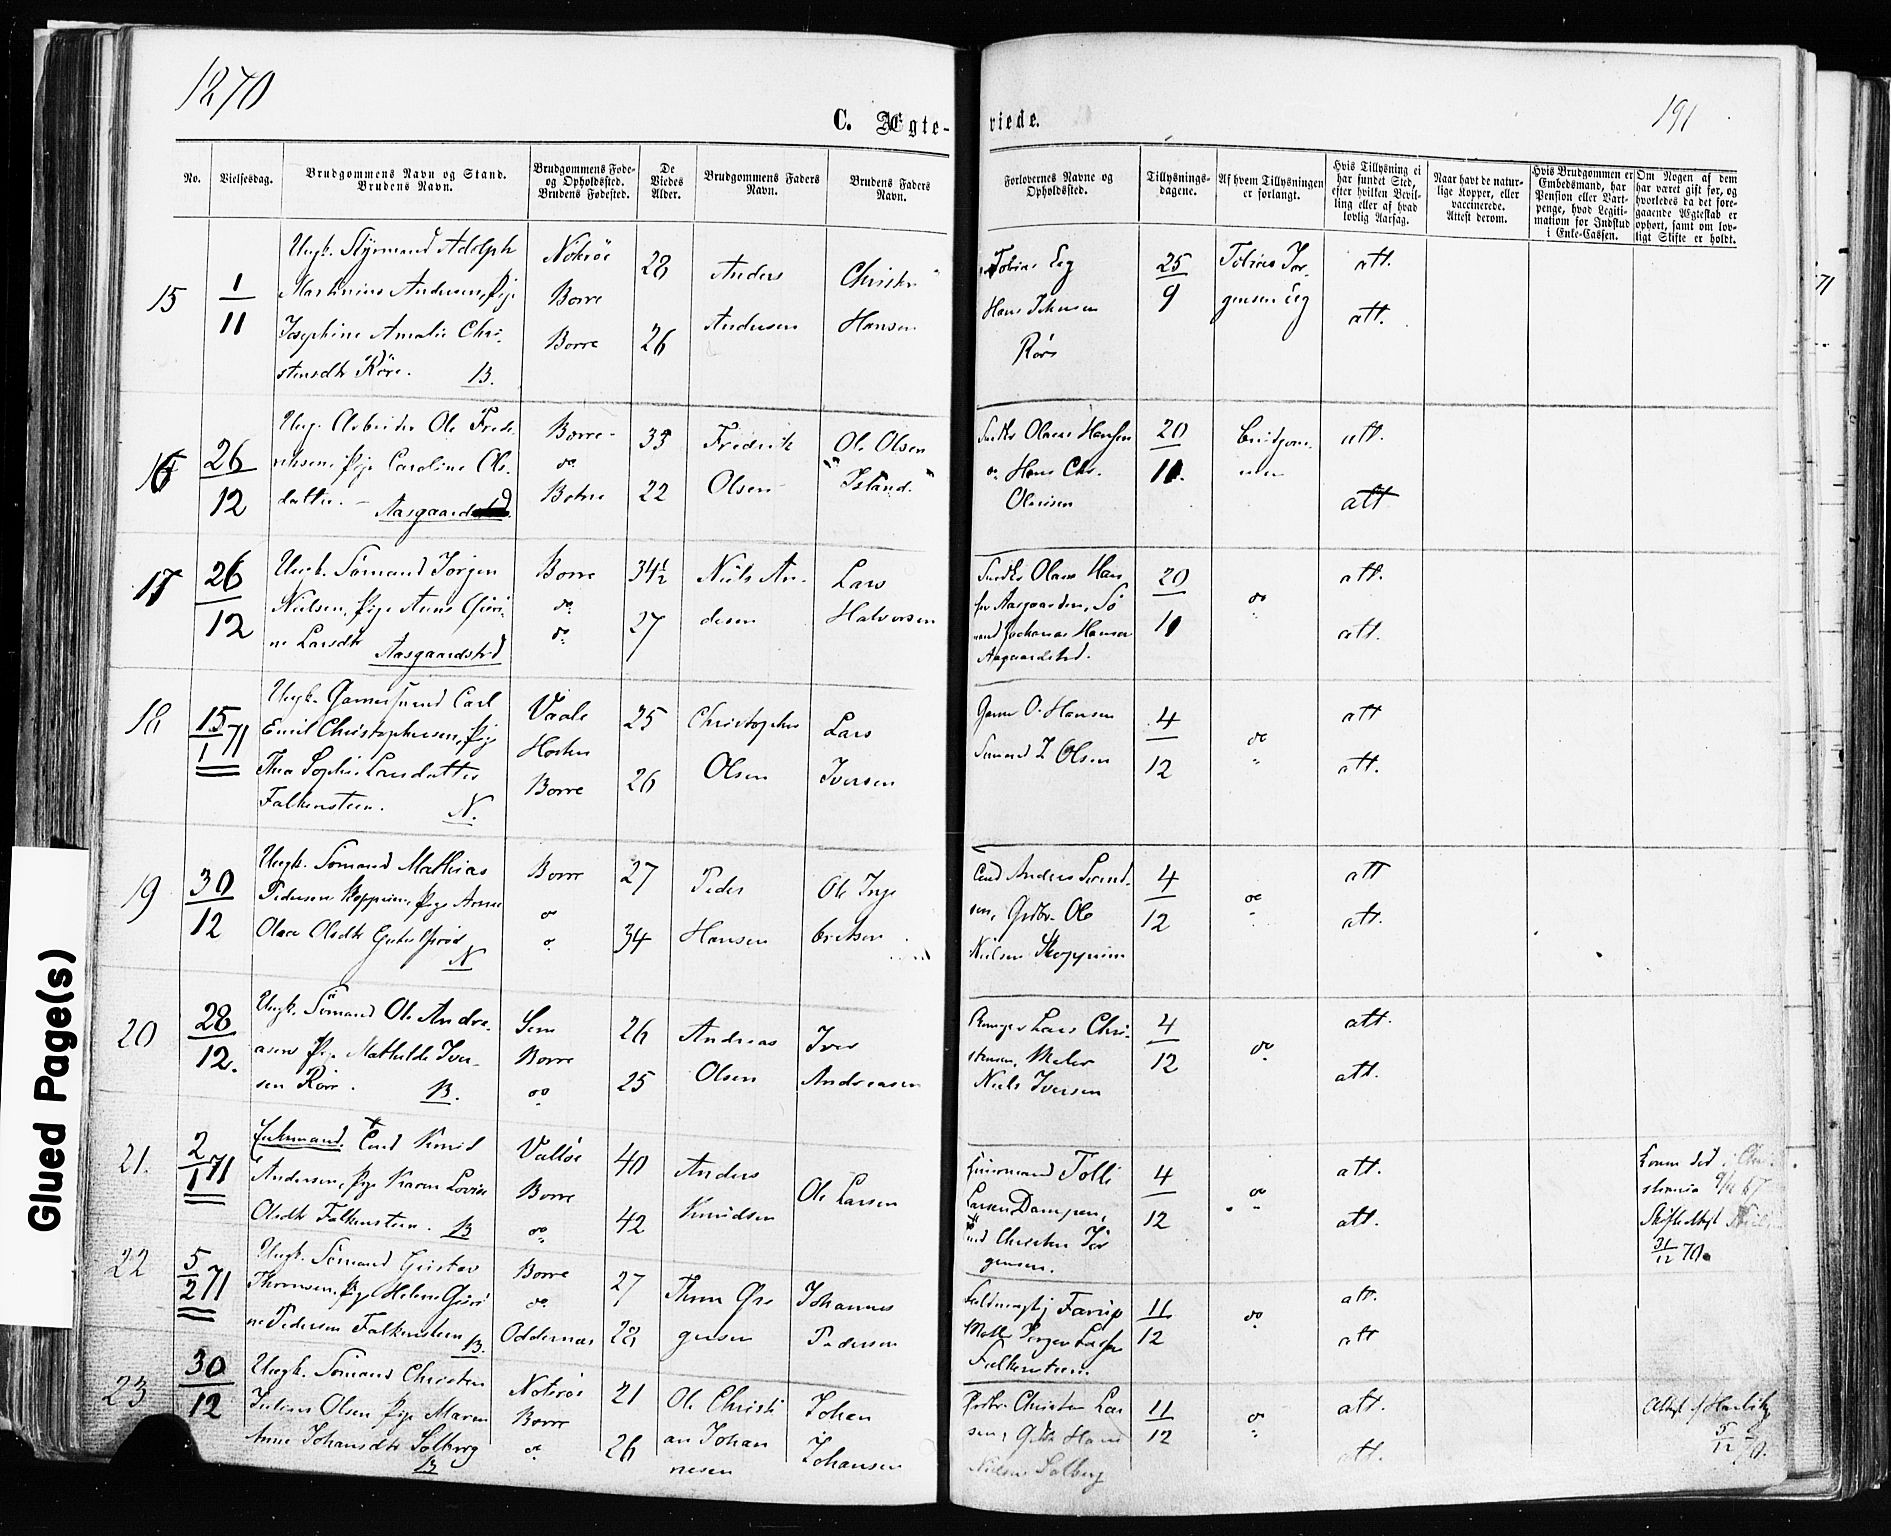 1270
191
C. Ægte-
viede.
No.
Vielsesdag.
Brudgommens Navn og Stand.
Brudens Navn.
Brudgommens Føde-
og Opholdssted.
Brudens Fødested.
De
Viedes
Alder.
Brudgommens Faders
Navn.
Brudens Faders
Navn.
Forlovernes Navne og
Opholdssted.
Tillysnings-
dagene.
Af hvem Tillysningen
er forlangt.
Hvis Tillysning ei
har fundet Sted,
efter hvilken Bevil-
ling eller af hvad
lovlig Aarsag.
Naar havt de natur-
lige Kopper, eller
vaccinerede.
Attest derom.
Hvis Brudgommen er
Embedsmand, har
Pension eller Vart-
penge, hvad Legiti-
mation for Indskud
i Enke-Cassen.
Om Nogen af dem
har været gift før, og
hvorledes da det fore-
gaaende Ægteskab er
ophørt, samt om lov-
ligt Skifte er holdt.
15
1/11
Ungk. Styrmand Adolph
Martinius Andersen, Pige
Josephine Amalie Chri-
stensdtr Röre. B.
Borre
Borre
28
26
Anders
Andersen
Hansen
Tobias Eeg
Hans Johnsen
25/9
Tobias Jør-
gensen Eeg
att.
att.
16
26/12
Ungk. Arbeider Ole Fred-
riksen, Pige Caroline Ols-
datter. - Aasgaard
Borre
do
33
22
Fredrik
Olsen
Ole Olsen
"Island."
Olaus Hansen
do Hans Chr.
20/11
Brudgom-
men
att.
att
17
26/12
Ungk. Sömand Jörgen
Nielsen, Pige Anne
ne Larsdtr Aasgaardstrd
Borre
do
do
34½
27
Niels An-
dersen
Lars
Halvorsen
Olaus Han
sen Aasgaarden, Sö
mand Hansen
Aagaardstrd.
20/11
do
att.
att.
18
15/1 71
Ungk. Carl
Emil Christophersen, Pige
Thea Sophie Larsdatter
Falkensteen. N.
Vaale
Horten
Borre
25
26
Christopher
Olsen
Lars
Iversen
O. Hansen
Sömand L Olsen
4/12
do
att
att.
19
30/12
Ungk. Sömand Mathias
Pedersen Skoppum, Pige Anne
Olava Olsdtr
N
Borre
do
do
27
34
Peder
Hansen
Ole Inge
bretsen
Anders
sen, Grdbr. Ole
Nielsen Skoppum
4/12
do
att
att.
20
28/12.
Ungk. Sömand Ole Andre-
asen Pige Mathilde Iver-
sen Rörr. B.
Sem
Borre
do
26
25
Andreas
Olsen
Iver
Andreasen
Lars Chri-
stensen, Maler
Niels Iversen
4/12
do
att.
att.
21.
2/1 71
Enkemand. Knud
Andersen, Pige Karen Lovise
Olsdtr Falkensteen. B
Vallöe
Borre
do
40
42
Anders
Knudsen
Ole Larsen
Tolli
Larsen Dampen,
Christen Jör
gensen.
4/12
do
att.
att.
Konen död i Chri-
stiania
31/12 70
22
5/2 71
Ungk. Sömand Gustav
Thomsen, Pige Helene
ne Pedersen Falkensteen B.
Borre
do
Oddernæs
27
28
Thom
gensen
Johannes
Pedersen
Farup
Falkensteen.
11/12
do
att.
att
23
30/12
Ungk. Sömand Christen
Julius Olsen Pige Maren
Anne Johansdtr Solberg
B
Nöteröe
Borre
do
21
26
Ole Christi
an Johan
nesen
Johan
Johansen
Grdbr. Christen Lar
sen, Hans
Nielsen Solberg
11/12
do
att.
att.
5/12 70.
Glued Page(s)
71